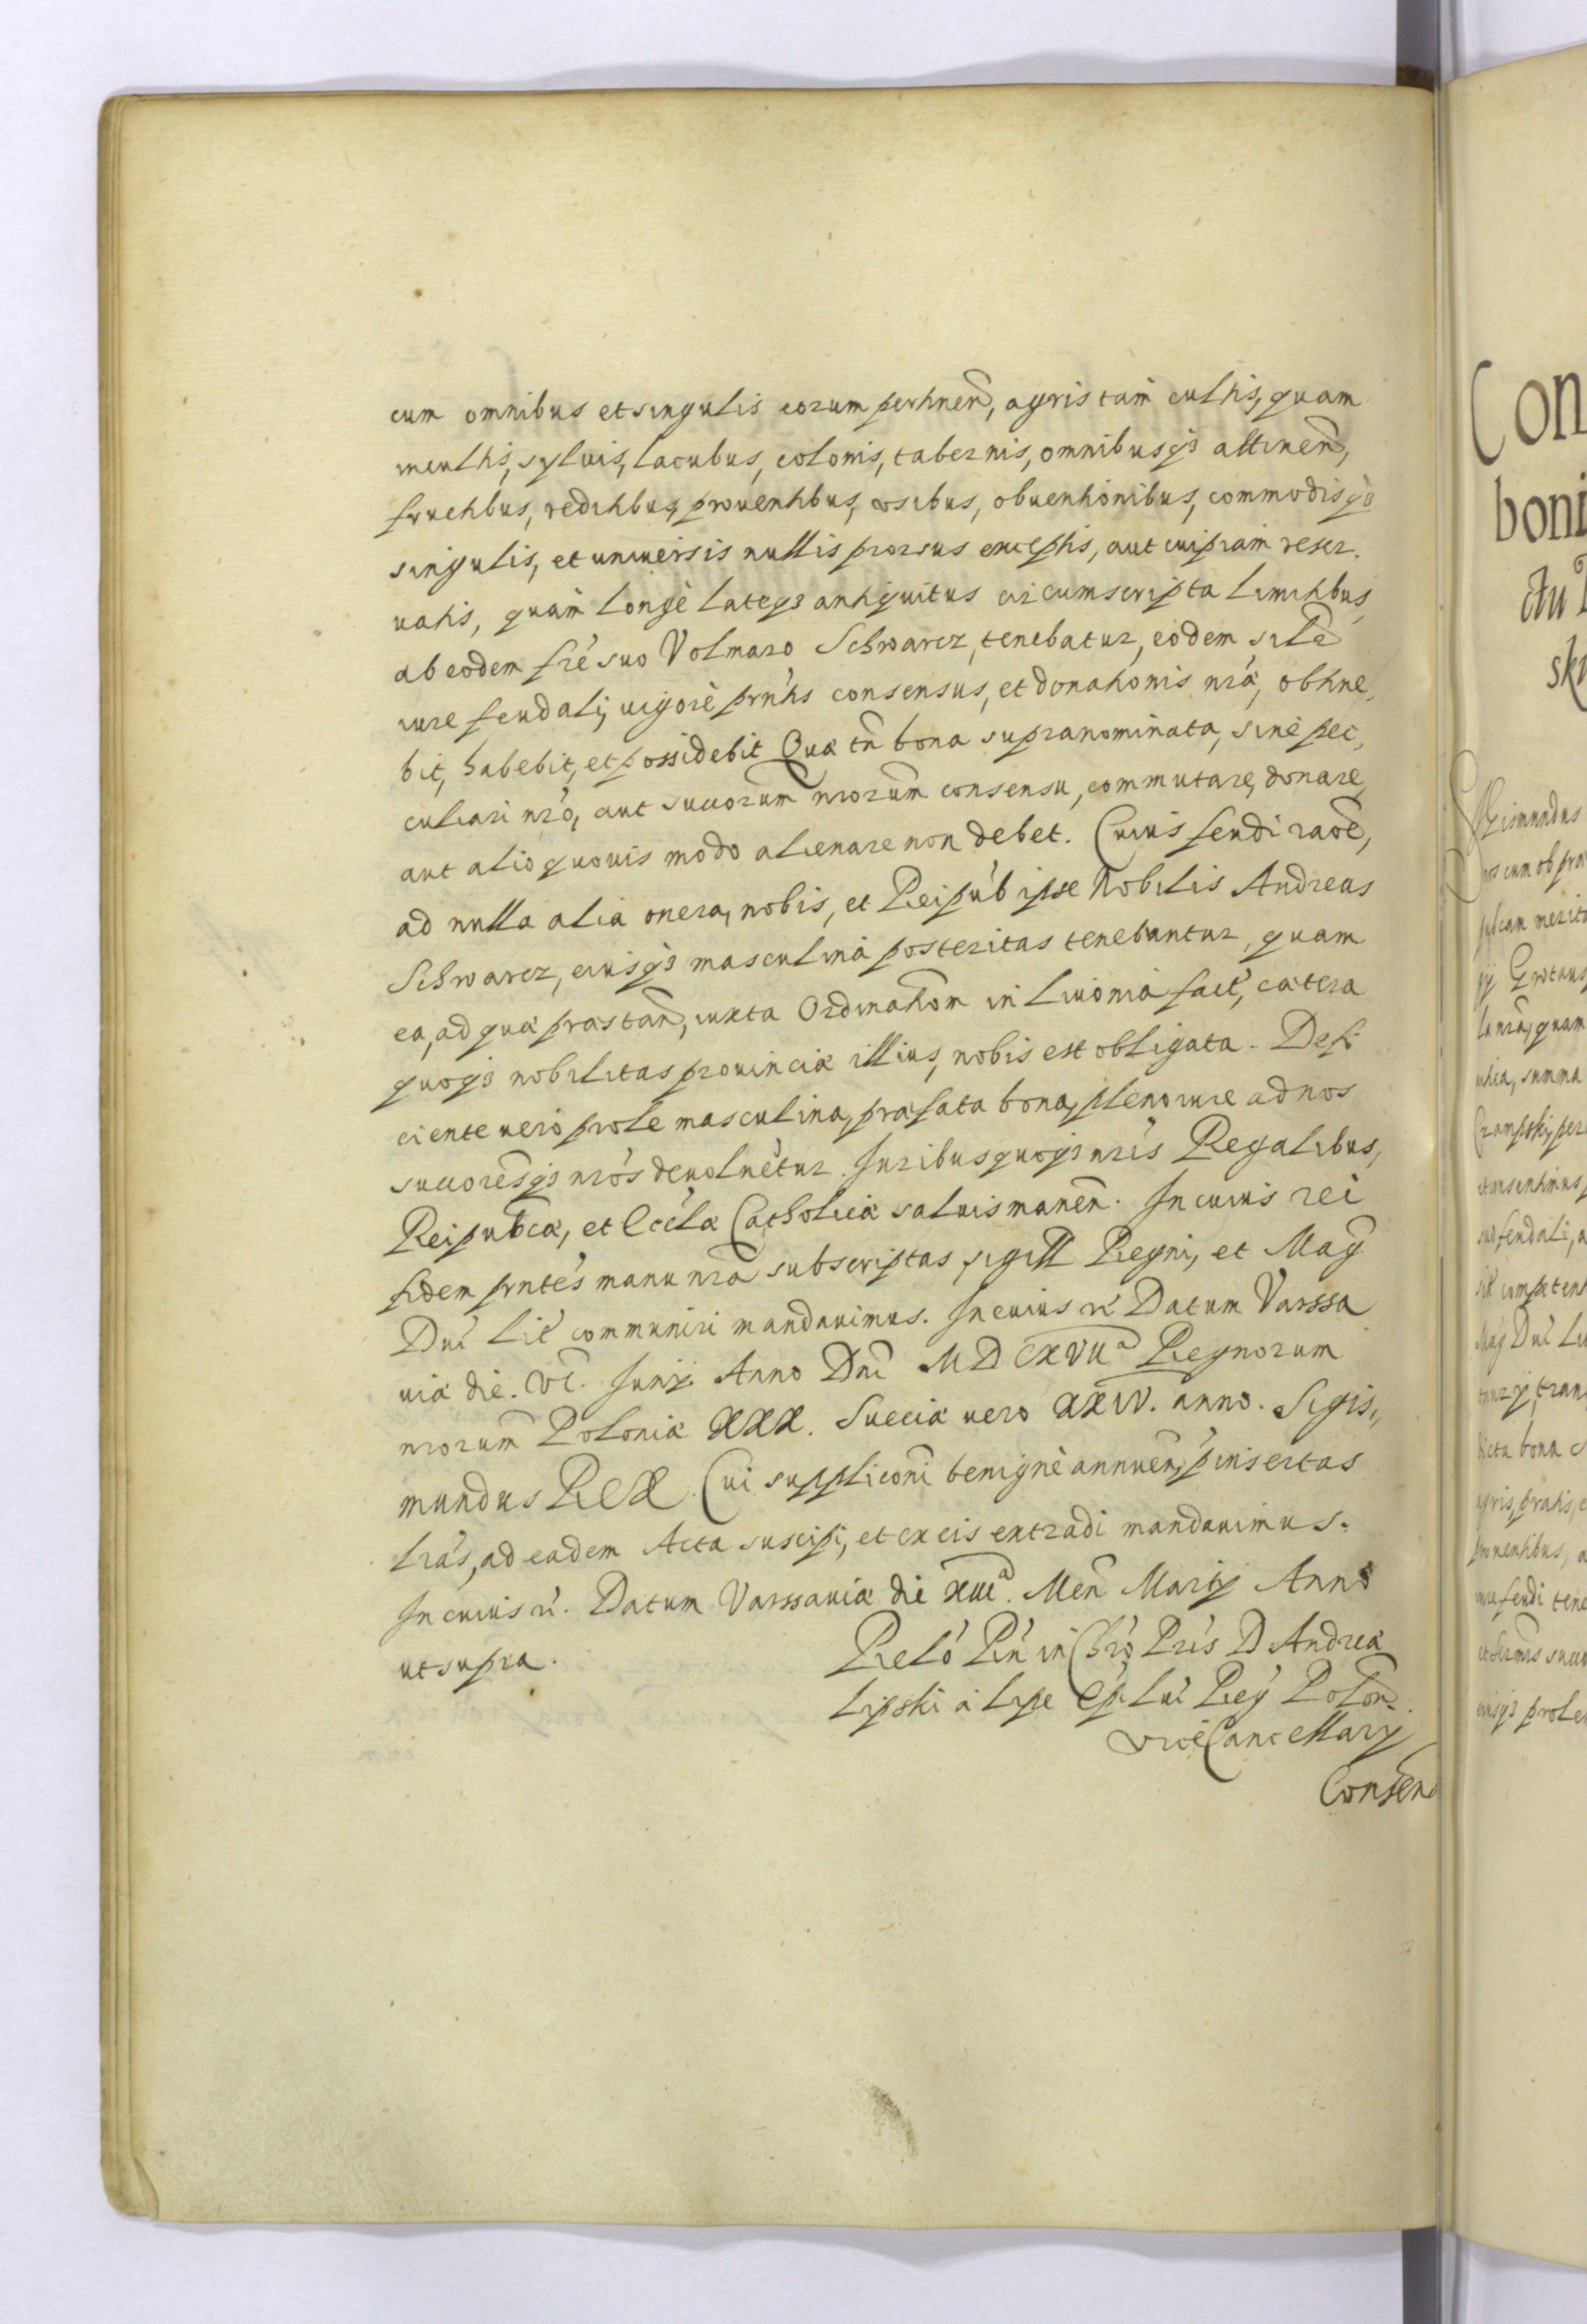 cum omnibus et singulis eorum pertinen̄, agris tam̀ cultis, quam
incultis, sylvis, lacubus, colonis, tabernis, omnibusqȝ attinen̄,
fructibus, reditibus, prouentibus, vsibus, obuentionibus, commodisqȝ
singulis, et uniuersis nullis prorsus exceptis, aut cuipiam reser-
uatis, quàm longè lateqȝ antiquitus circumscripta limitibus,
ab eodem fr̀e suo Volmaro Schwarcz, tenebatur, eodem sil̄e
iure feudali, uigore prn̄tis consensus, et donationis nrã, obtine,
bit, habebit, et possidebit Quæ tn̄ bona supranominata, sine pec,
culiari nrõ, aut succorum̄ nrorum̄ consensu, commutare, donare,
aut alio quouis modo alienare non debet. Cuius feudi raoē,
ad nulla alia onera, nobis, et Reipúb ipse Nobilis Andreas
Schwarcz, eiusqȝ masculina posteritas tenebantur, quam
ea, ad quæ præstan̄, iuxta Ordinatiom̄ in Liuonia fact́, cætera
quoqȝ nobilitas prouinciæ illius, nobis est obligata. Defi
ciente uero prole masculina, præfata bona, pleno iure ad nos
succoresqȝ nrós deuoluètur. Juribus quoqȝ nrís Regalibus,
Reipub̄cæ, et Eccĺæ Catholicæ saluis manen̄. In cuius rei
fidem prntés manu nrã subscriptas, sigill Regni, et Mag̃
Duć Lit́ communiri mandauimus. In cuius rí Datum Varssa
uiæ die. VI. Junij. Anno Dnī M D CXVIIᵃ Regnorum
nrorum̄ Poloniæ XXX. Sueciæ uero XXIV. anno. Sigis,,
mundus REX. Cui suppliconī benignè annuen̄, p̀insertas
Lrás, ad eadem Acta suscipi, et ex eis extradi mandauimus.
In cuius rí. Datum Varssauiæ die XIIIᵃ. Men̄ Martij Anno
ut supra.
Reló Rń in Chrò Prís D Andreæ
Lipski à Lipe Ep̃ Luć Reg̃ Polon̄.
ViceCancellarij
Consen